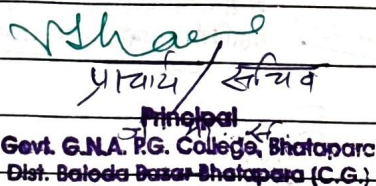 प्राचार्य / सचिव
Principal
Govt. G.N.A. P.G. College, Bhatapara
Dist. Baloda Bazar-Bhatapara (C.G.)